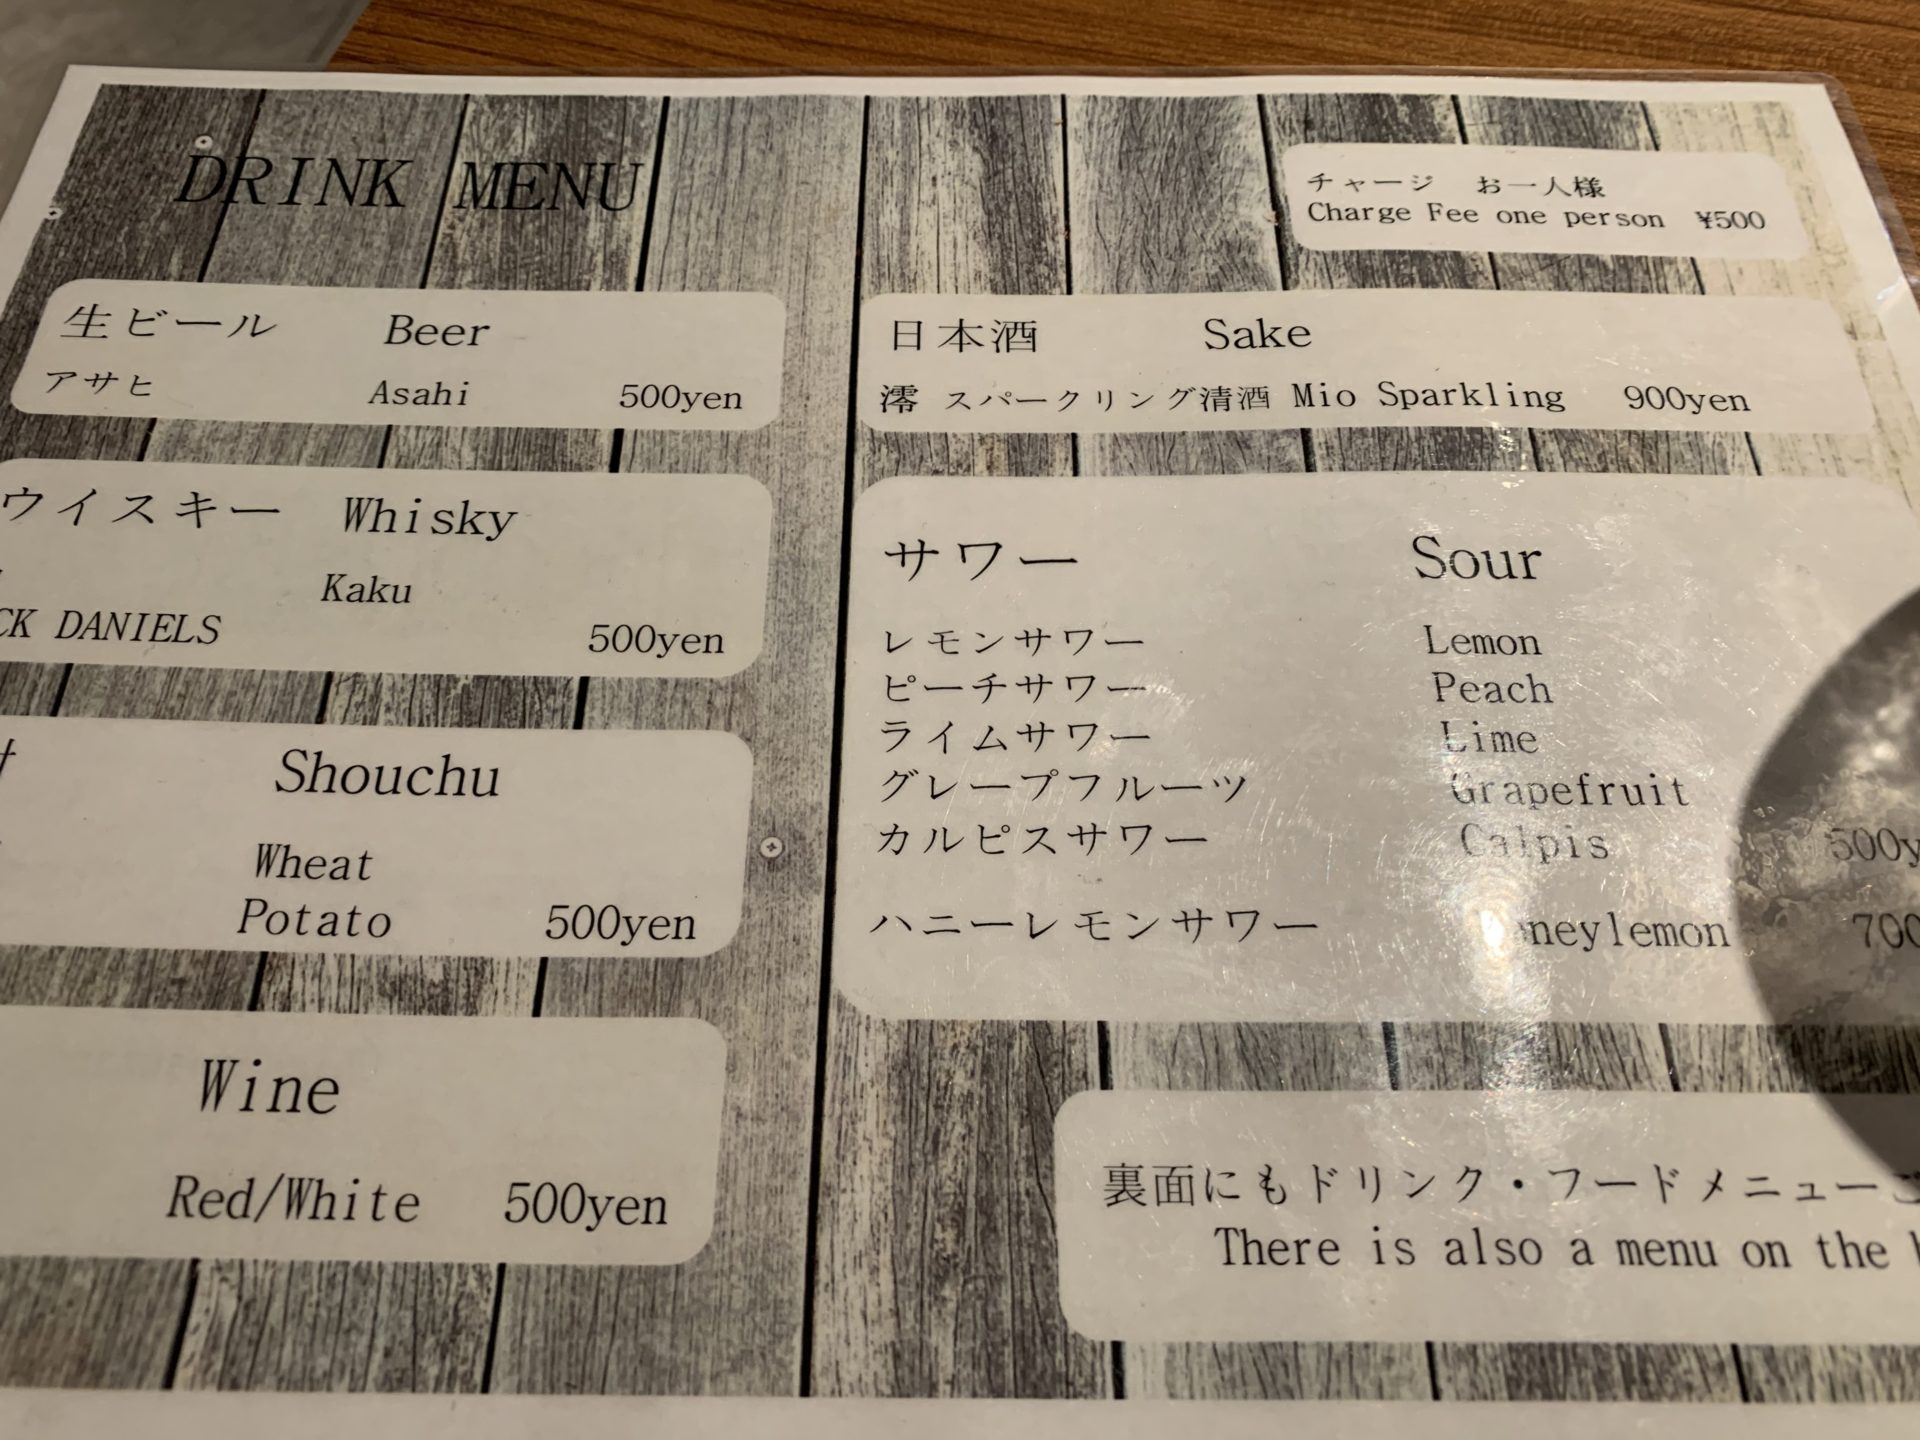 DRINK MENU
チャージ お一人様
Charge Fee one person ¥500
生ビール Beer
アサヒ Asahi 500yen
ウイスキー Whisky
Kaku
DANIELS 500yen
Shouchu
Wheat
Potato 500yen
Wine
Red/White 500yen
日本酒 Sake
澪 スパークリング清酒 Mio Sparkling 900yen
サワー Sour
レモンサワー Lemon
ピーチサワー Peach
ライムサワー Lime
グレープフルーツ Grapefruit
カルピスサワー Calpis 500y
ハニーレモンサワー neylemon 700
裏面にもドリンク・フードメニュー
There is also a menu on the